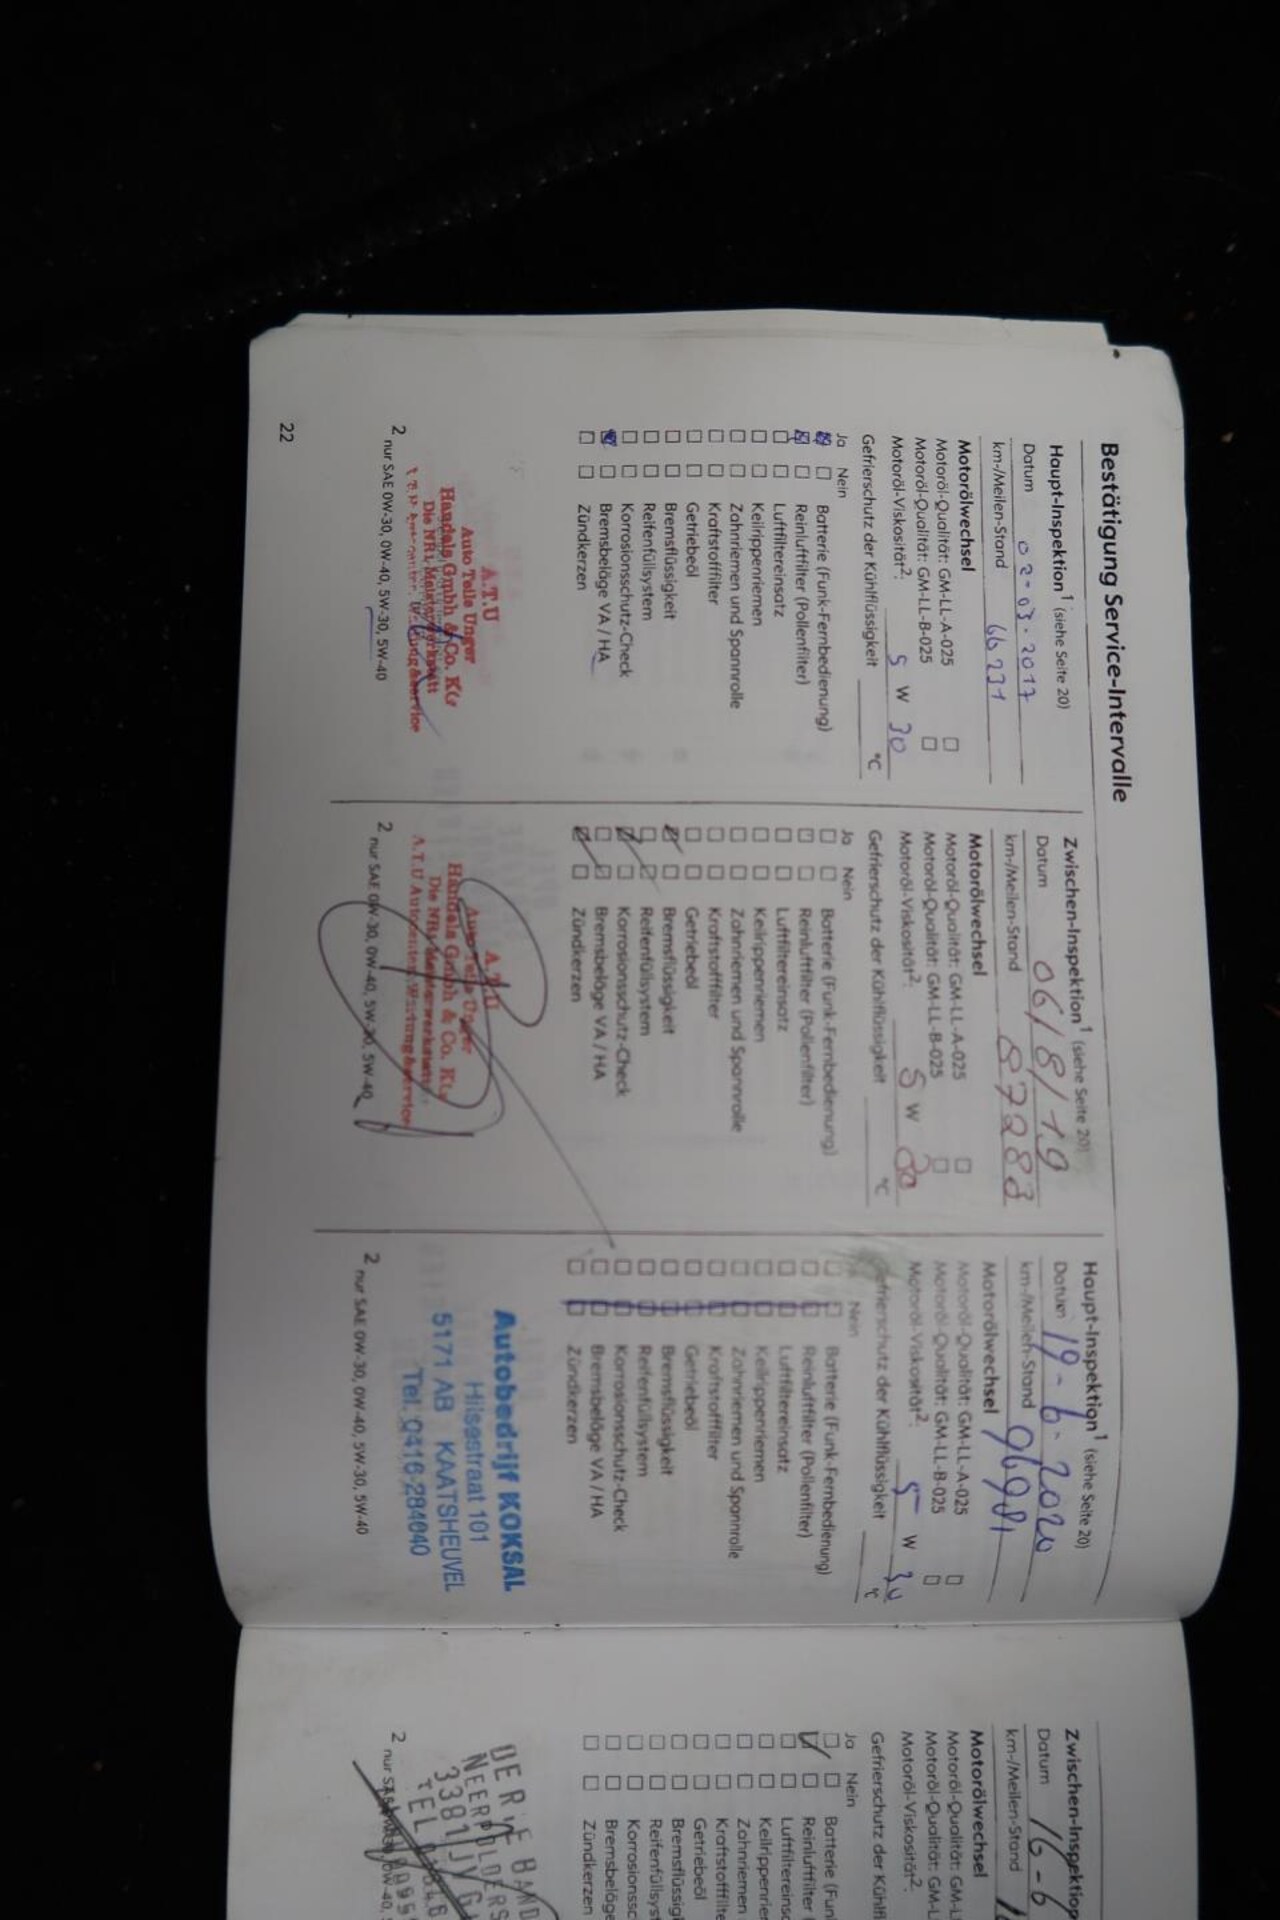 Bestätigung Service-Intervalle
Haupt-Inspektion¹ (siehe Seite 20)
Datum 02-03-2017
km-/Meilen-Stand 66231
Motorölwechsel
Motoröl-Qualität: GM-LL-A-025
Motoröl-Qualität: GM-LL-B-025
Motoröl-Viskosität²: 5 W 30
Gefrierschutz der Kühlflüssigkeit °C
Ja Nein
Batterie (Funk-Fernbedienung)
Reinluftfilter (Pollenfilter)
Luftfiltereinsatz
Keilrippenriemen
Zahnriemen und Spannrolle
Kraftstofffilter
Getriebeöl
Bremsflüssigkeit
Reifenfüllsystem
Korrosionsschutz-Check
Bremsbeläge VA / HA
Zündkerzen
A.T.U
Auto Teile Unger
Handels Gmbh & Co. KG
Die NR1 Meisterwerkstatt
2 nur SAE 0W-30, 0W-40, 5W-30, 5W-40
22
Zwischen-Inspektion¹ (siehe Seite 20)
Datum 06/8/19
km-/Meilen-Stand 87283
Motorölwechsel
Motoröl-Qualität: GM-LL-A-025
Motoröl-Qualität: GM-LL-B-025
Motoröl-Viskosität²: 5 W 30
Gefrierschutz der Kühlflüssigkeit °C
Ja Nein
Batterie (Funk-Fernbedienung)
Reinluftfilter (Pollenfilter)
Luftfiltereinsatz
Keilrippenriemen
Zahnriemen und Spannrolle
Kraftstofffilter
Getriebeöl
Bremsflüssigkeit
Reifenfüllsystem
Korrosionsschutz-Check
Bremsbeläge VA / HA
Zündkerzen
A.T.U
Auto Teile Unger
Handels Gmbh & Co. KG
Die NR1 Meisterwerkstatt
2 nur SAE 0W-30, 0W-40, 5W-30, 5W-40
Haupt-Inspektion¹ (siehe Seite 20)
Datum 19-6-2020
km-/Meilen-Stand 96981
Motorölwechsel
Motoröl-Qualität: GM-LL-A-025
Motoröl-Qualität: GM-LL-B-025
Motoröl-Viskosität²: 5 W 30
Gefrierschutz der Kühlflüssigkeit °C
Nein
Batterie (Funk-Fernbedienung)
Reinluftfilter (Pollenfilter)
Luftfiltereinsatz
Keilrippenriemen
Zahnriemen und Spannrolle
Kraftstofffilter
Getriebeöl
Bremsflüssigkeit
Reifenfüllsystem
Korrosionsschutz-Check
Bremsbeläge VA / HA
Zündkerzen
Autobedrijf KOKSAL
Hilsestraat 101
5171 AB KAATSHEUVEL
Tel. 0416-284040
2 nur SAE 0W-30, 0W-40, 5W-30, 5W-40
Zwischen-Inspektion
Datum 16-6
km-/Meilen-Stand
Motorölwechsel
Motoröl-Qualität: GM-L
Motoröl-Qualität: GM-L
Motoröl-Viskosität²:
Gefrierschutz der Kühlfl
Ja Nein
Batterie (Fun
Reinluftfilter
Luftfiltereins
Keilrippenrie
Zahnriemen
Kraftstofffilte
Getriebeöl
Bremsflüssigk
Reifenfüllsyst
Korrosionssc
Bremsbeläge
Zündkerzen
BAND
3381
TEL
2 nur SA